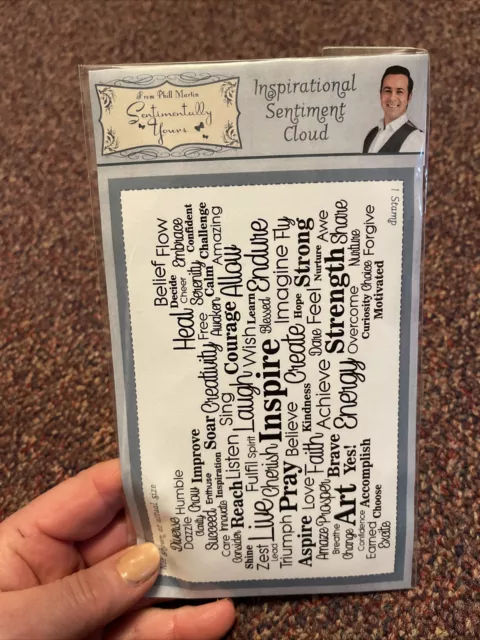 From Phill Martin
Sentimentally
Yours
Inspirational
Sentiment
Cloud
1 Stamp
Belief Flow
Decide Embrace
Diverse Humble Heal Cheer Confident
Dazzle Grow Improve Free Serenity Challenge
Unity Enthuse Soar Creativity Awaken Calm Amazing
Succeed Inspiration Sing Courage Allow
Care Innovate
Consider Reach Listen Laugh Wish Learn
Shine Fulfil Spirit Blessed Endure
Zest Live Cherish Inspire Imagine Fly
Lead
Triumph Pray Believe Create Hope Strong
Aspire Love Kindness Dare Feel Nurture Awe
Amaze Prosper Faith Achieve Strength Share
Breathe Brave
Change Art Yes! Energy Overcome Nurture
Confidence Curiosity Choice Forgive
Earned Accomplish Motivated
Excite Choose